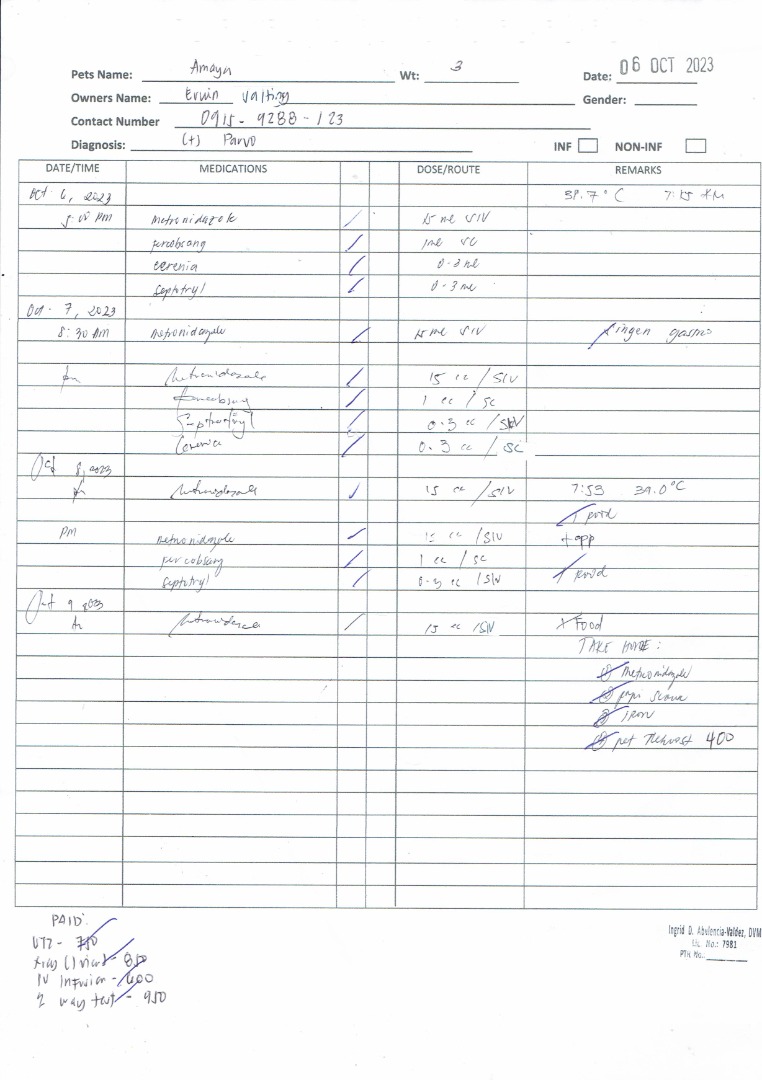 Pets Name: Amaya Wt: 3 Date: 06 OCT 2023
Owners Name: Erwin Valting Gender:
Contact Number 0915-9288-123
Diagnosis: (+) Parvo INF NON-INF
DATE/TIME MEDICATIONS DOSE/ROUTE REMARKS
Oct. 6, 2023 38.7°C
Metronidazole 15 ml SIV
percobsang 1ml SC
cerenia 0.3 ml
Septotryl 0.3 ml
Oct. 7, 2023
8:30 Am Metronidazole 15 ml SIV
Metronidazole 15 cc / SIV
Percobsang 1 cc / SC
Septotryl 0.3 cc / SIV
Cerenia 0.3 cc / SC
Oct 8, 2023
Metronidazole 15 cc / SIV 7:53 39.0°C
PM Metronidazole 15 cc / SIV + app
percobsang 1 cc / SC
Septotryl 0.3 cc / SIV
Oct 9 2023
Metronidazole 15 cc / SIV Food
TAKE HOME:
Metronidazole
papi
IRON
pet 400
PAID:
UTZ - 750
xray () view - 850
IV Infusion - 400
2 way test - 950
Ingrid D. Abulencia-Valdez, DVM
Lic. No.: 7981
PTR No.: